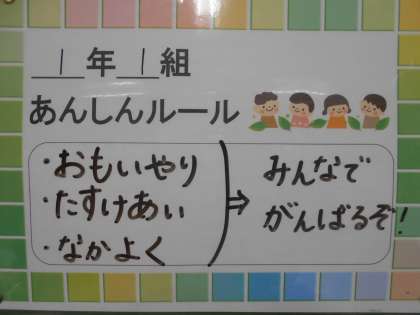 1年1組
あんしんルール
・おもいやり
・たすけあい
・なかよく
⇒
みんなで
がんばるぞ!